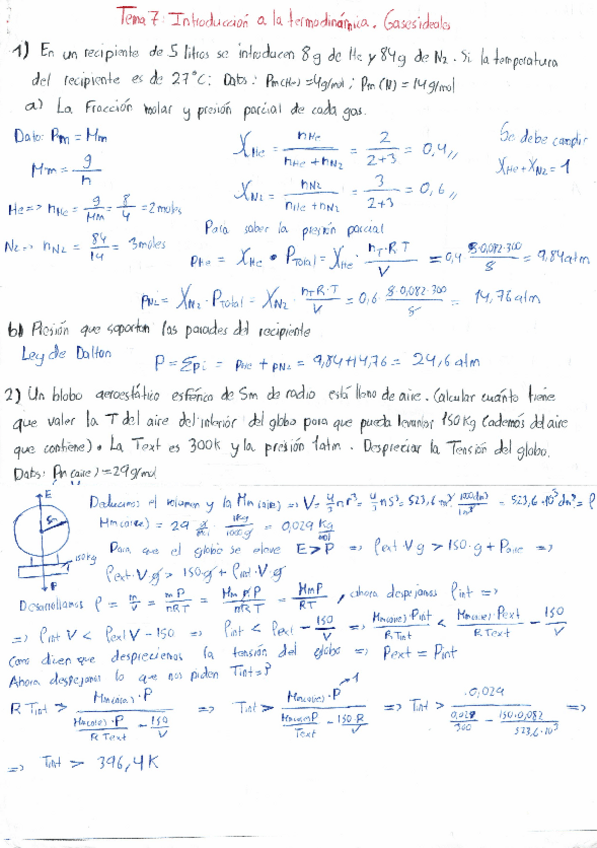 Tema 7: Introducción a la termodinámica. Gases ideales
1) En un recipiente de 5 litros se introducen 8g de He y 84g de N2. Si la temperatura
del recipiente es de 27°C: Datos: Pm(He)=4g/mol; Pm(N)=14g/mol
a) La Fracción molar y presión parcial de cada gas.
Dato: Pm = Mm
Mm = g/n
He => nHe = g/Mm = 8/4 = 2 moles
N2 => nN2 = 84/14 = 3 moles
XHe = nHe/(nHe + nN2) = 2/(2+3) = 0,4,,
XN2 = nN2/(nHe + nN2) = 3/(2+3) = 0,6,,
Se debe cumplir
XHe + XN2 = 1
Para saber la presión parcial
PHe = XHe • PTotal = XHe · nT·R·T/V = 0,4 5·0,082·300/5 = 9,84 atm
PN2 = XN2 · PTotal = XN2 · nT·R·T/V = 0,6 · 5·0,082·300/5 = 14,76 atm
b) Presión que soportan las paredes del recipiente
Ley de Dalton P = Σpi = PHe + PN2 = 9,84+14,76 = 24,6 atm
2) Un blobo aerostático esférica de 5m de radio está lleno de aire. Calcular cuánto tiene
que valer la T del aire del interior del globo para que pueda levantar 150Kg (además del aire
que contiene). La Text es 300k y la presión 1atm. Despreciar la Tensión del globo.
Datos: Pm(aire)=29g/mol
E
5m
150kg
P
Deducimos el volumen y la Mm(aire) => V = 4/3 π r³ = 4/3 π 5³ = 523,6 m³ · 1000dm³/1m³ = 523,6·10³ dm³ = ℓ
Mm(aire) = 29 g/mol · 1Kg/1000g = 0,029 Kg/mol
Para que el globo se eleve E > P => ρext·V g > 150·g + Paire =>
ρext·V·g > 150·g + ρint·V·g
Desarrollamos ρ = m/V = mP/nRT = Mm n P/nRT = MmP/RT, ahora despejamos ρint =>
=> ρint V < ρext V - 150 => ρint < ρext - 150/V => Mm(aire)·Pint/R Tint < Mm(aire)·Pext/R Text - 150/V
Como dicen que despreciemos la tensión del globo => Pext = Pint
Ahora despejamos lo que nos piden Tint = ?
R Tint > Mm(aire)·P/(Mm(aire)·P/R Text - 150/V) => Tint > Mm(aire)·P 1/(Mm(aire)P/Text - 150 R/V) => Tint > ·0,029/(0,029/300 - 150·0,082/523,6·10³) =>
=> Tint > 396,4 K